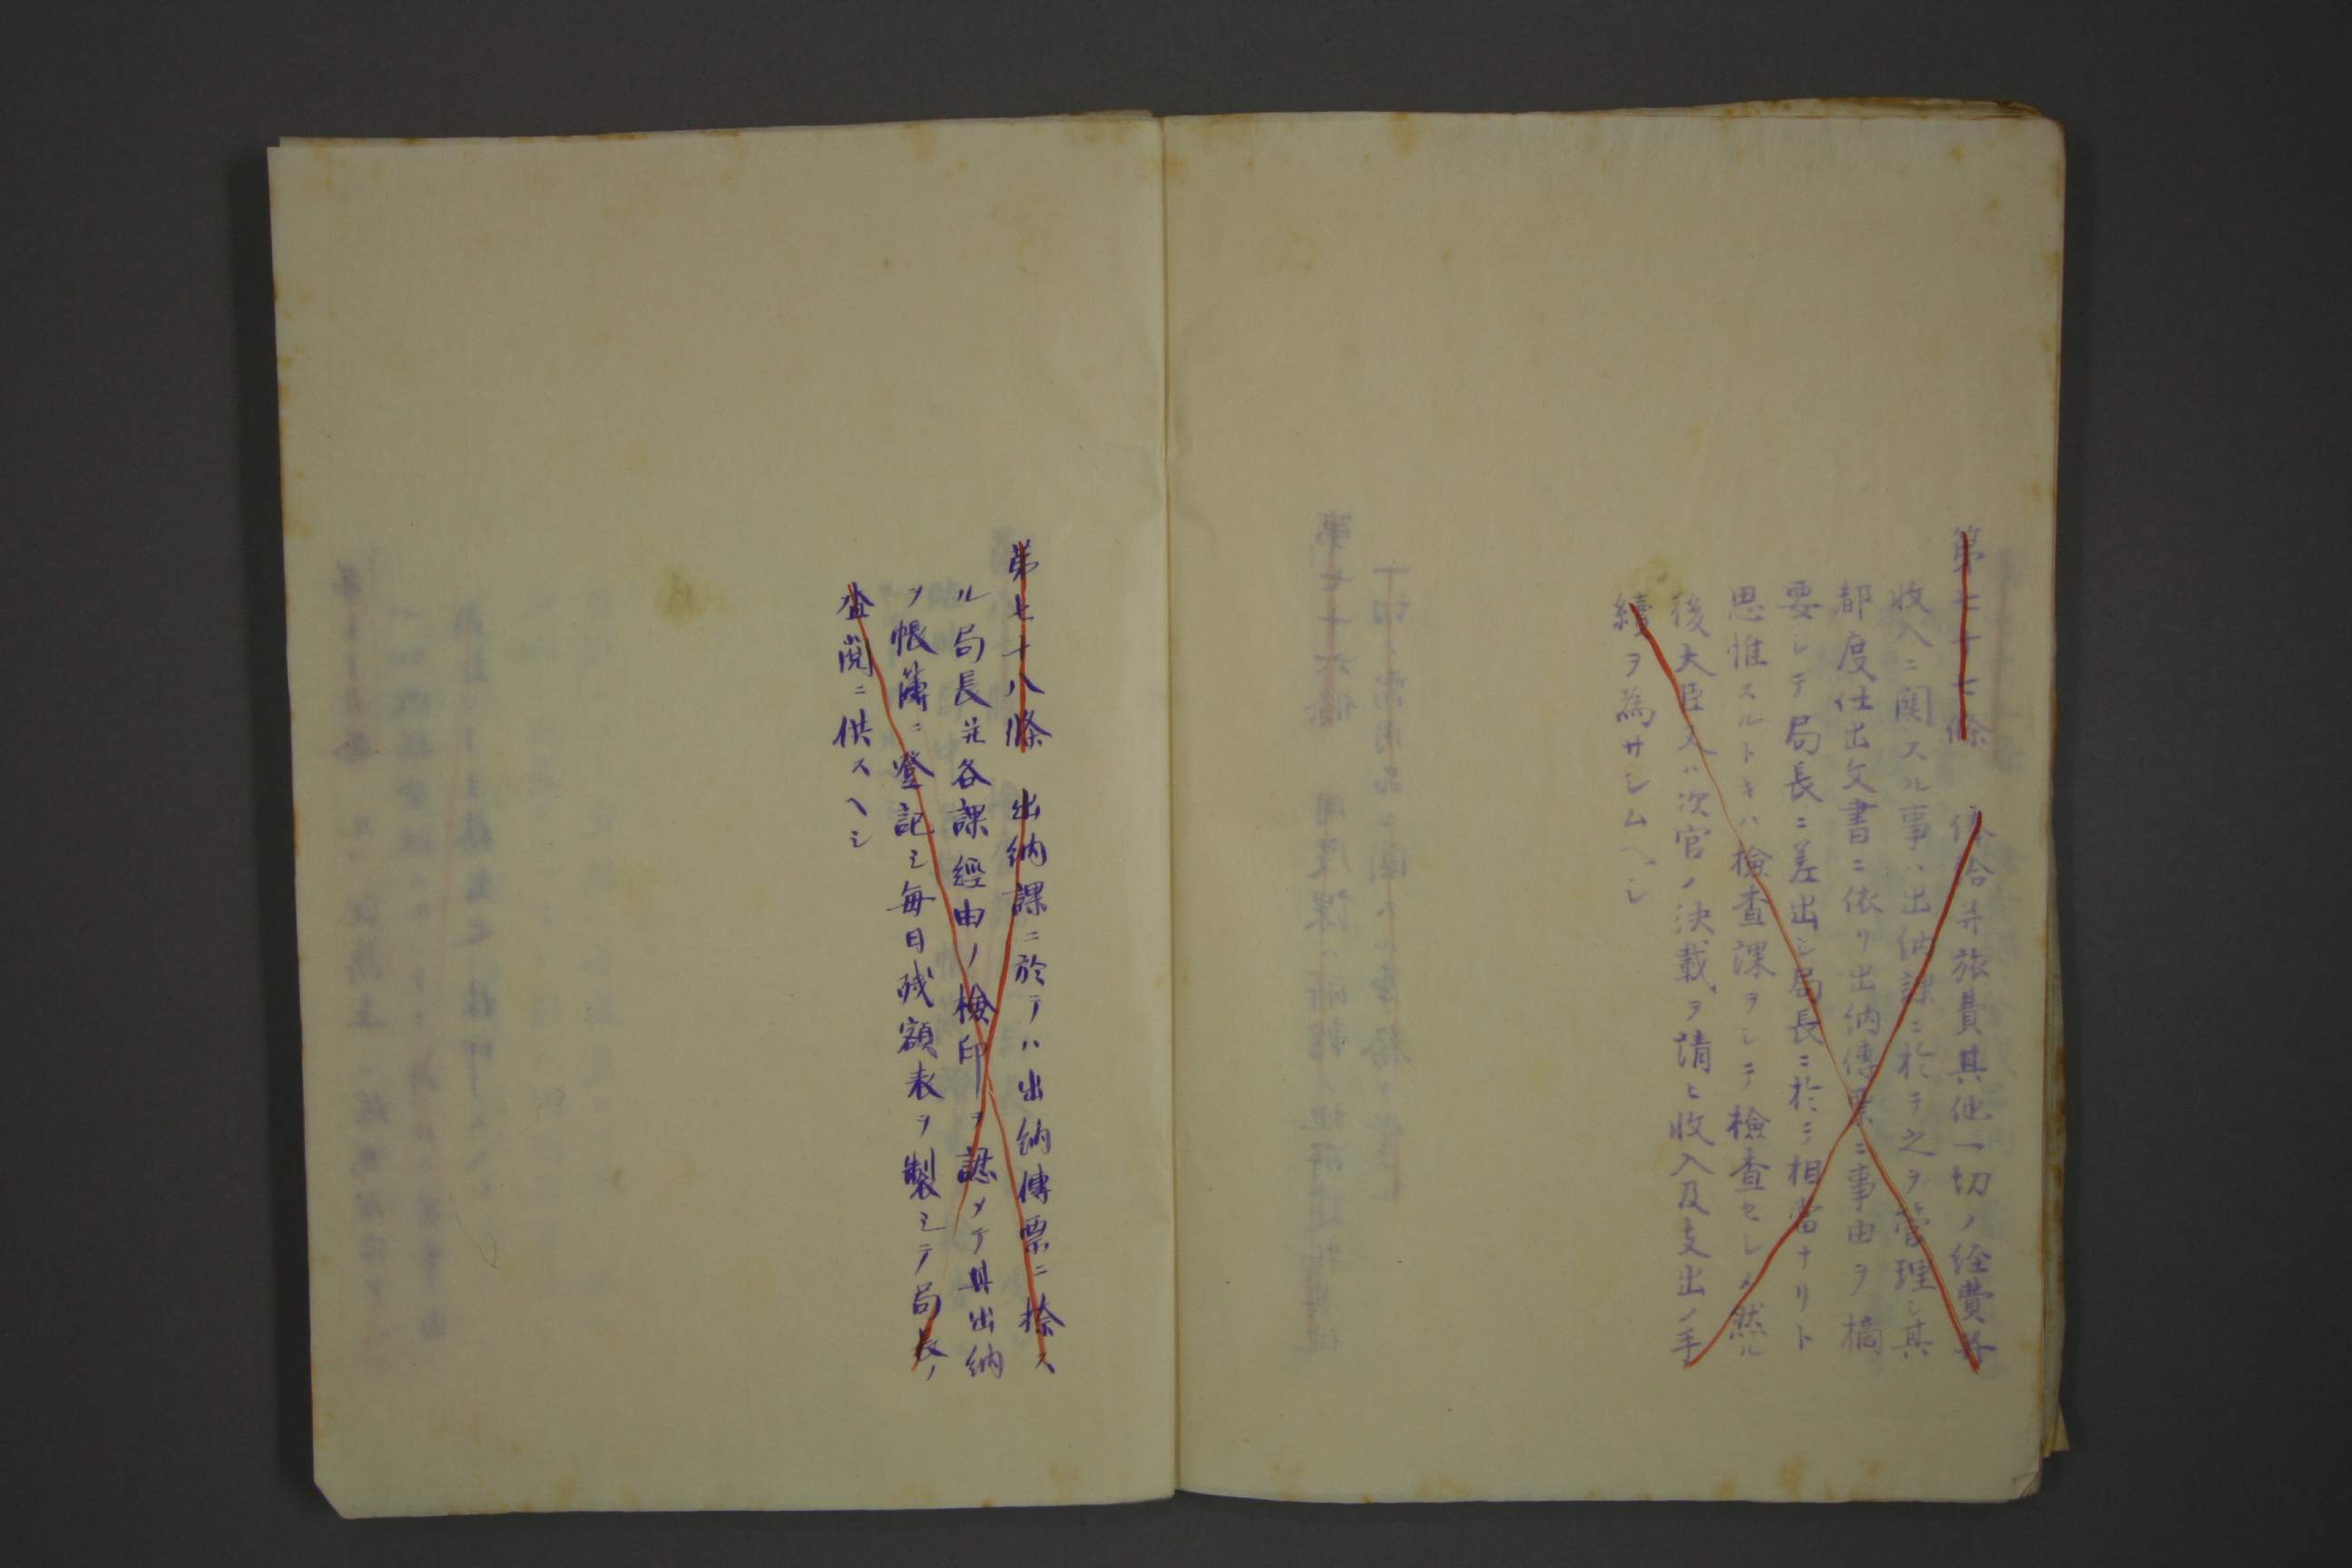 第七十七條　俸給并旅費其他一切ノ経費并
收入ニ関スル事ハ出納課ニ於テ之ヲ管理シ其
都度仕出文書ニ依リ出納傳票ニ事由ヲ摘
要シテ局長ニ差出シ局長ニ於テ相當ナリト
思惟スルトキハ檢査課ヲシテ檢査セシメ然ル
後大臣又ハ次官ノ決裁ヲ請ヒ收入及支出ノ手
續ヲ為サシムヘシ
第七十八條　出納課ニ於テハ出納傳票ニ捺ス
ル局長并各課經由ノ檢印ヲ認メテ其出納
ヲ帳簿ニ登記シ毎日残額表ヲ製シテ局長ノ
查閲ニ供スヘシ